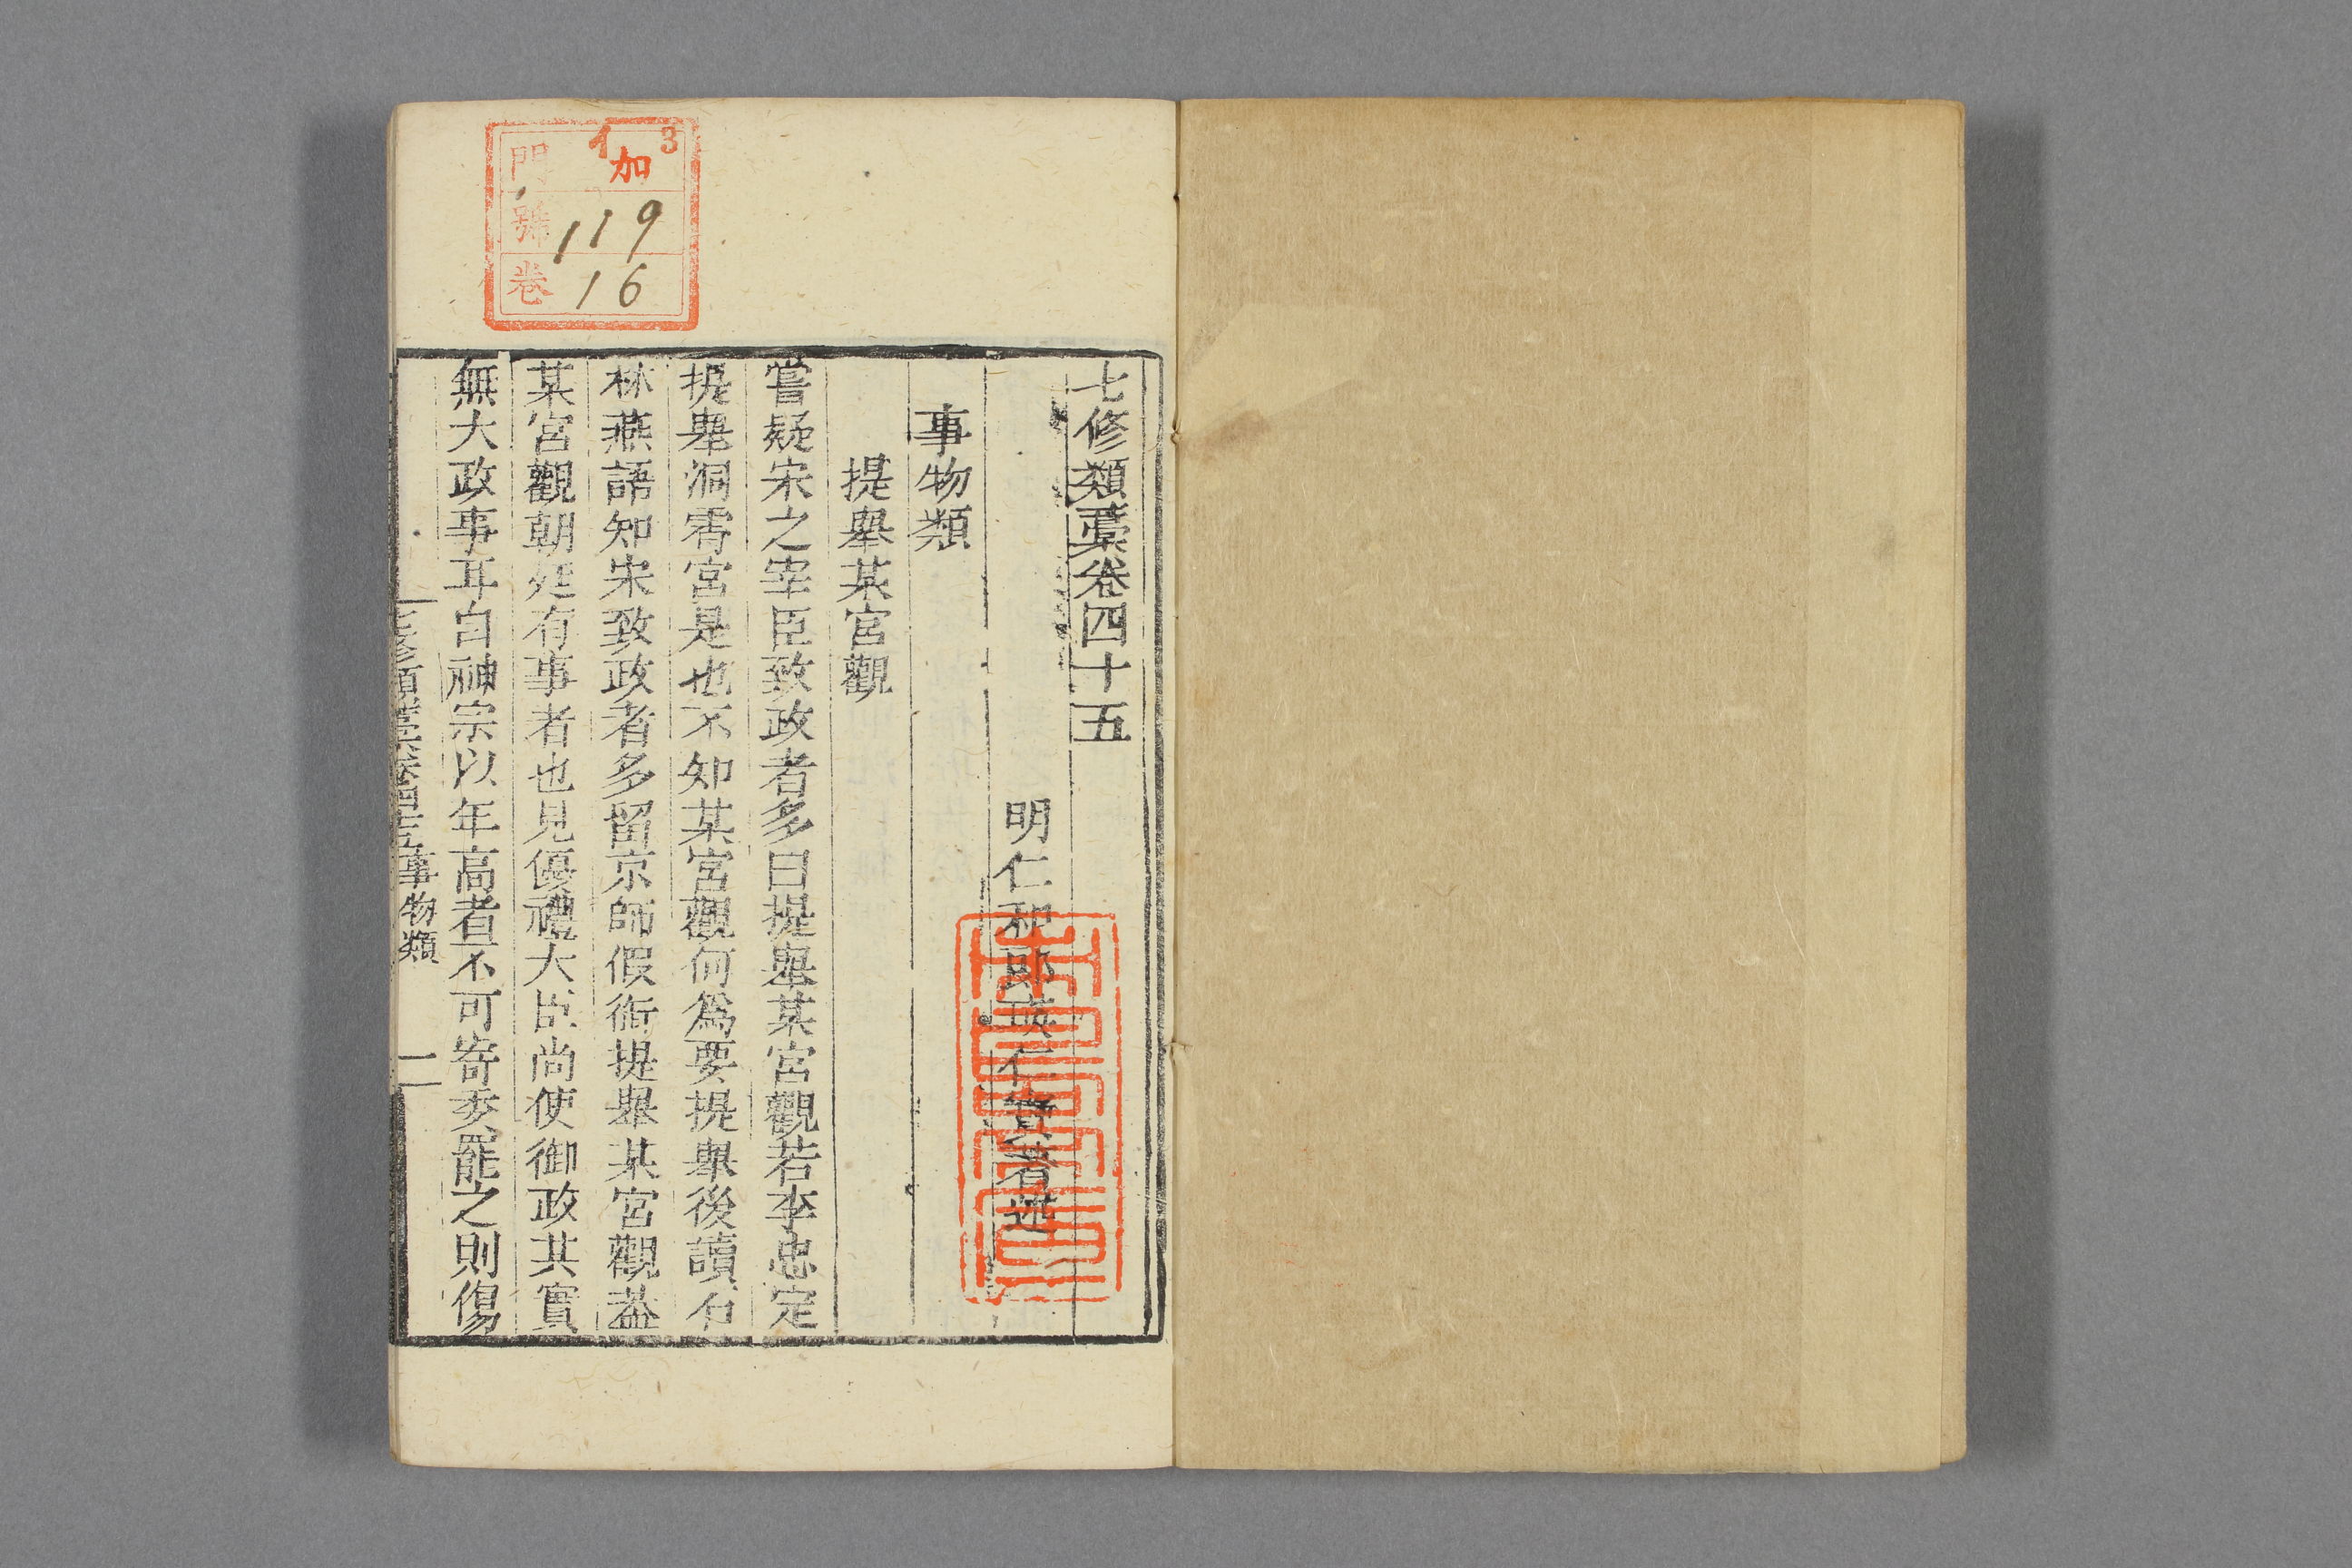 七修類藁卷四十五
明仁和郎瑛仁寶著述
事物類
提舉某宮觀
嘗疑宋之宰臣致政者多曰提舉某宮觀若李忠定
提舉洞霄宮是也不知某宮觀何爲要提舉後讀石
林燕語知宋致政者多留京師假銜提舉某宮觀葢
某宮觀朝廷有事者也見優禮大臣尚使御政其實
無大政事耳自神宗以年高者不可寄委罷之則傷
七修類藁卷四十五事物類 一
門 イ加 3
號 119
卷 16